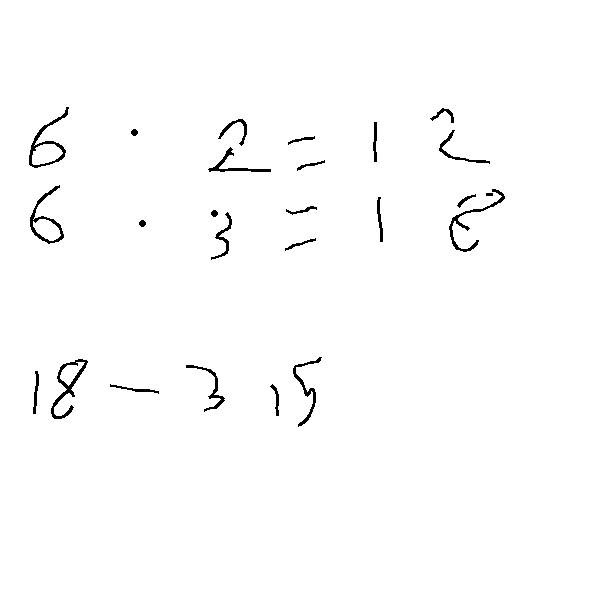 6 · 2 = 12
6 · 3 = 18
18 - 3 15